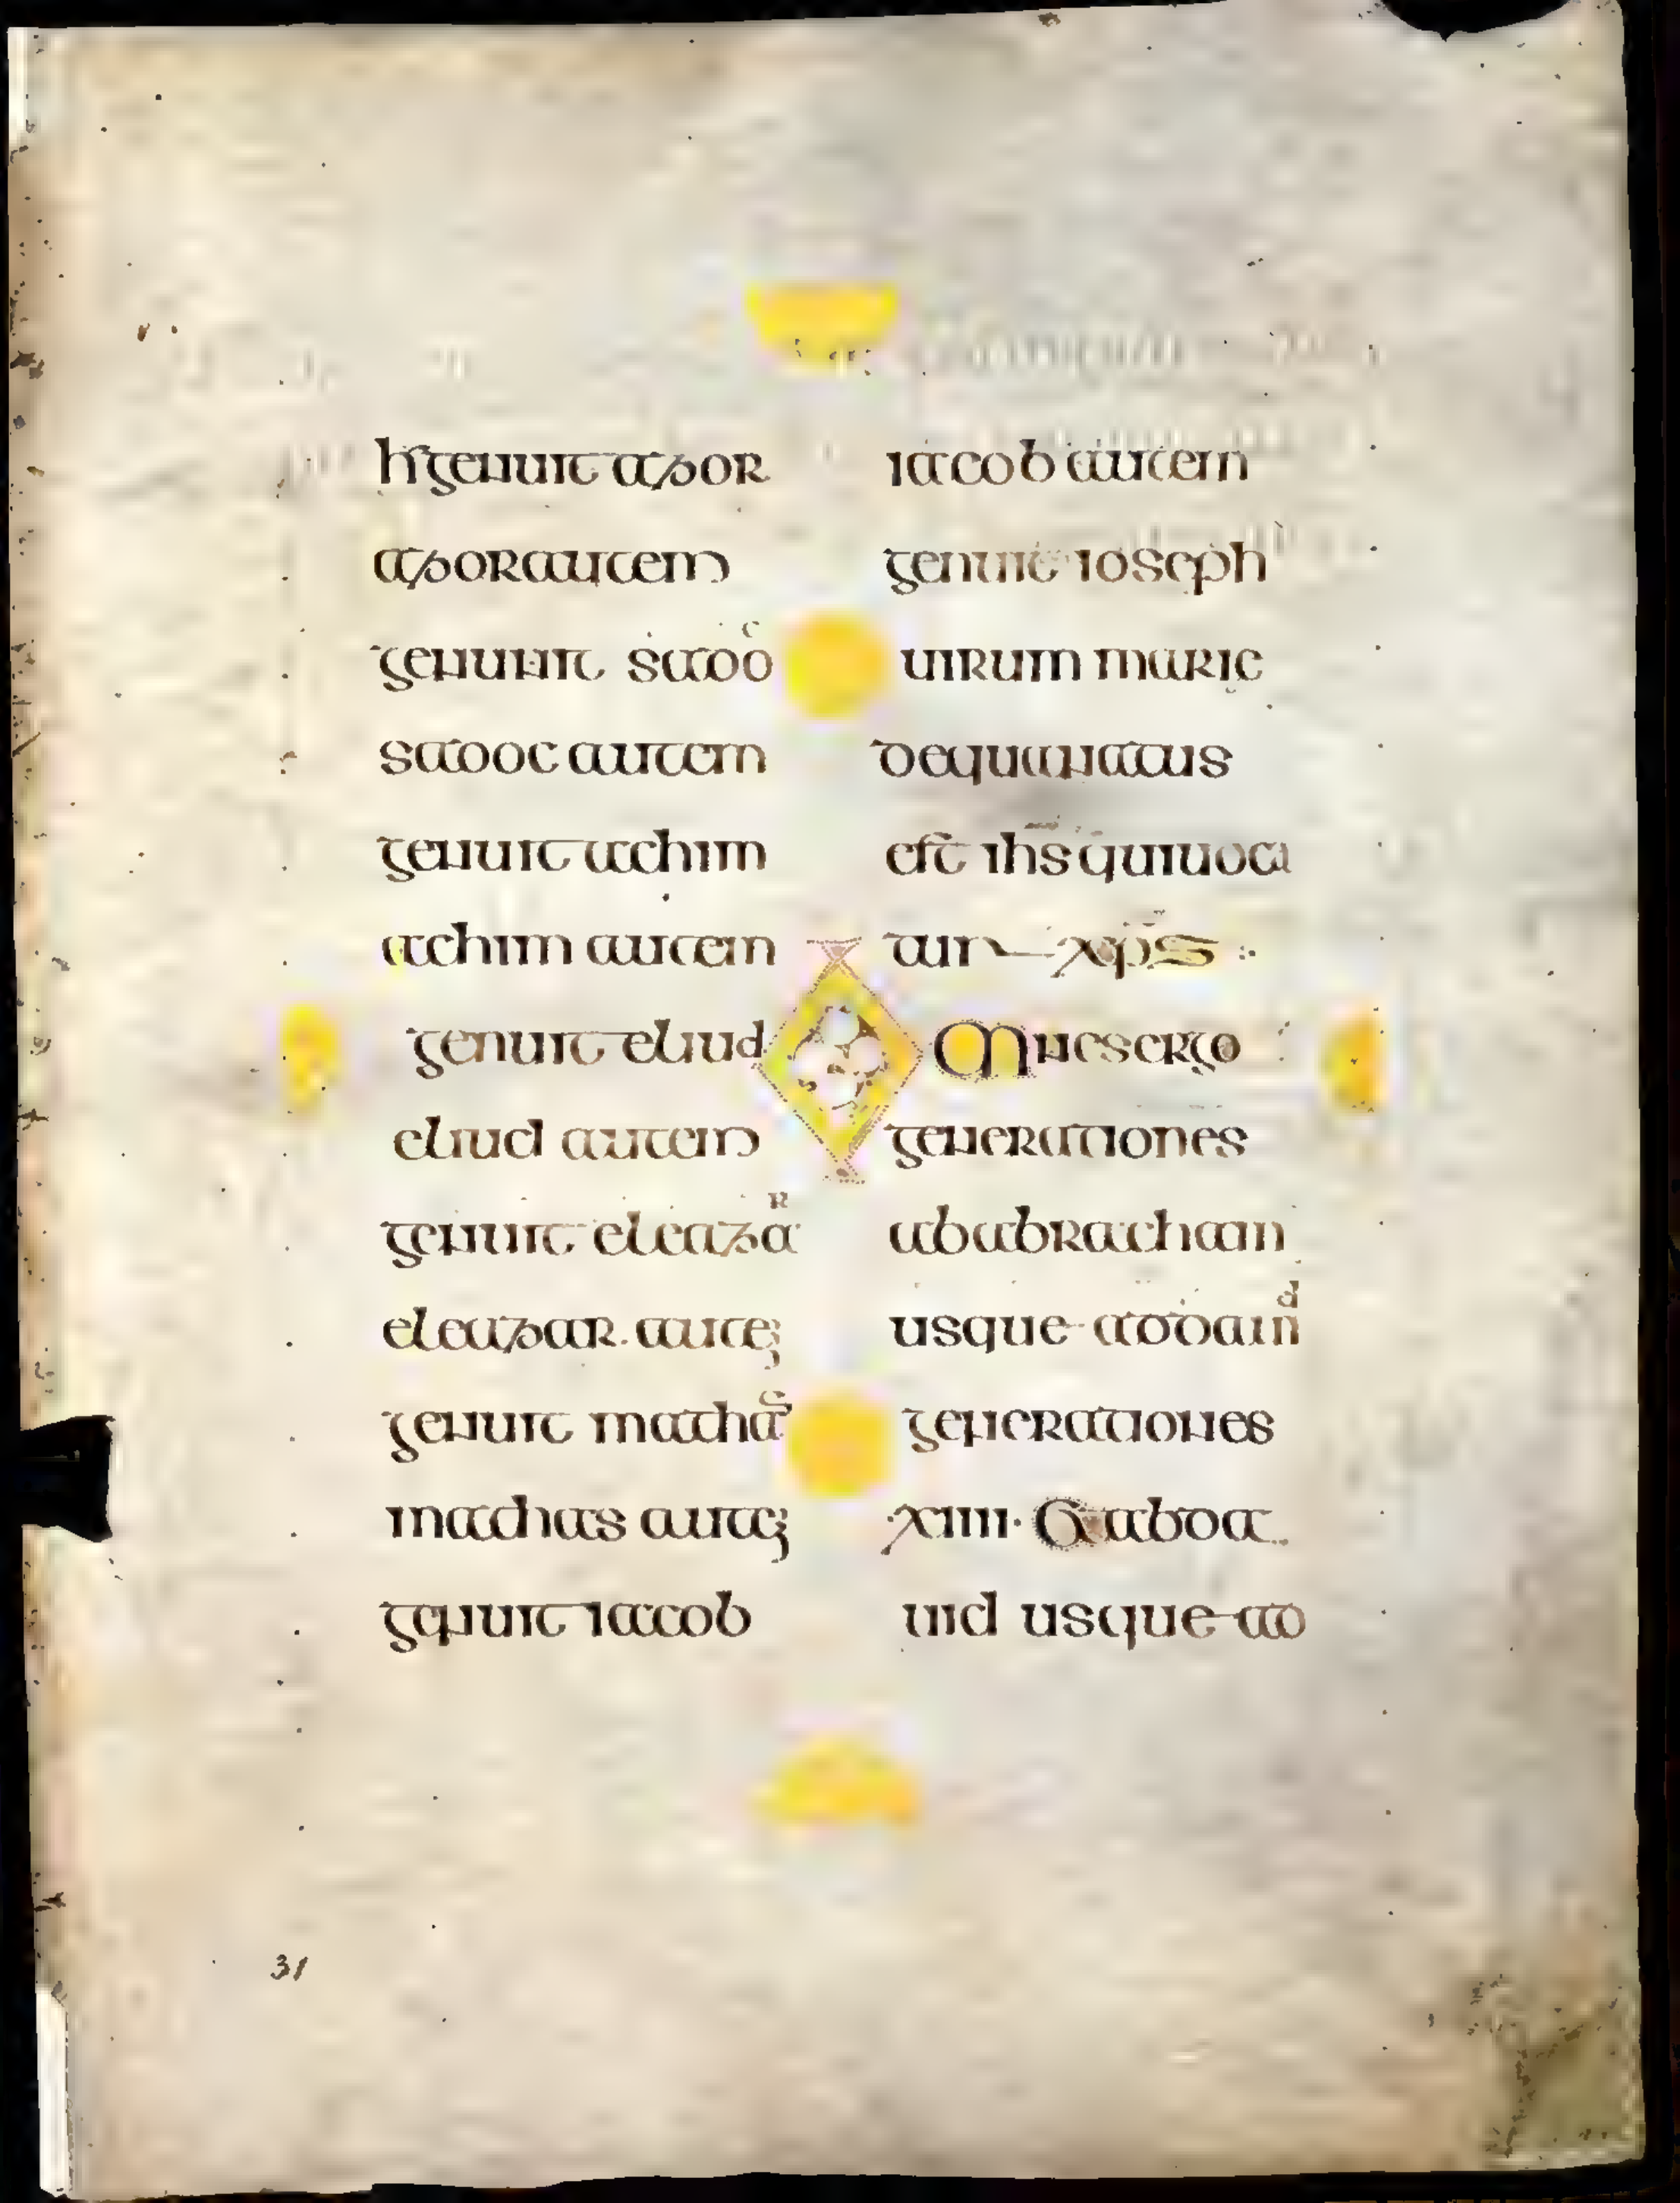 hr genuit azor
azor autem
genuit sadoc
sadoc autem
genuit achim
achim autem
genuit eliud
eliud autem
genuit eleazar
eleazar autē
genuit mathā
mathas autē
genuit iacob
iacob autem
genuit ioseph
uirum marie
de qua natus
est ihs qui uoca
tur xps
Omnes ergo
generationes
ab abracham
usque ad dauid
generationes
xiiii. Et a da
uid usque ad
31